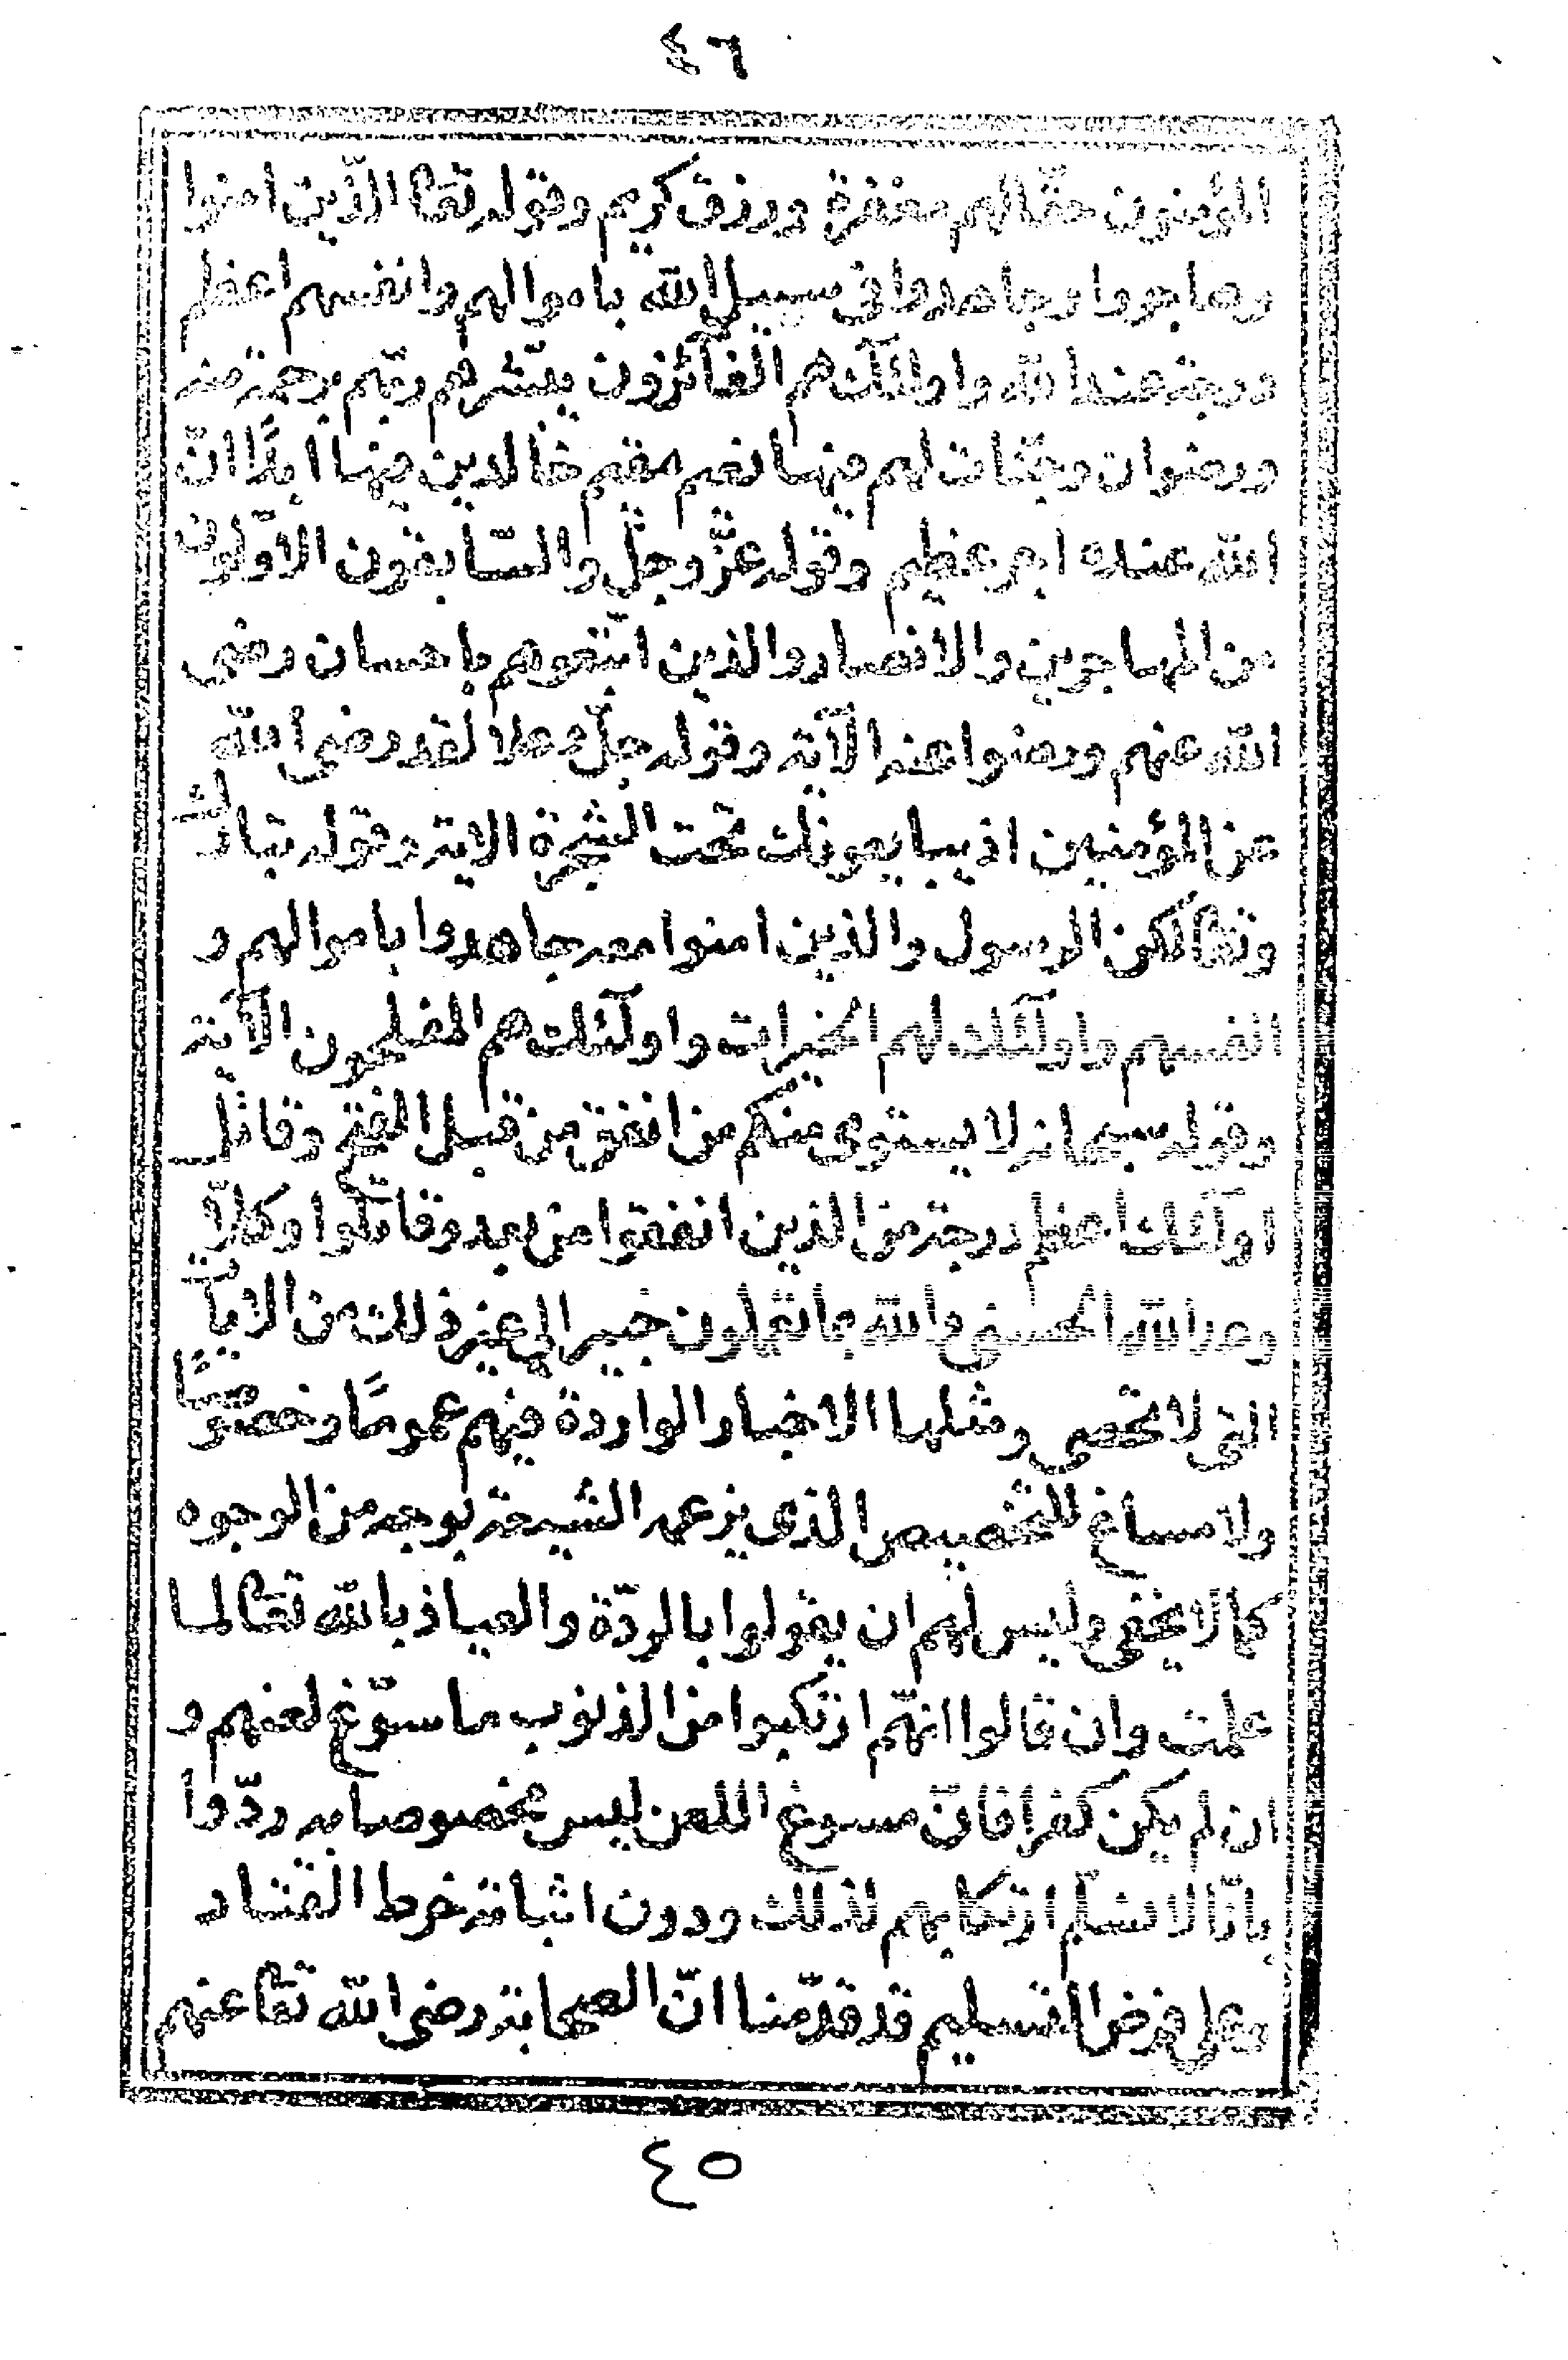 ٤٦
المؤمنون حقّا لهم مغفرة ورزق كريم وقوله تعا الذين امنوا
وهاجروا وجاهدوا في سبيل الله باموالهم وانفسهم اعظم
درجة عند الله واولئك هم الفآئزون يبشّرهم ربّهم برحمة منه
ورضوان وجنّات لهم فيها نعيم مقيم خالدين فيها ابدًا انّ
الله عنده اجر عظيم وقوله عزّ وجلّ والسّابقون الاوّلون
من المهاجرين والانصار والذين اتّبعوهم باحسان رضى
الله عنهم ورضوا عنه الآية وقوله جلّ وعلا لقد رضى الله
عن المؤمنين اذ يبايعونك تحت الشجرة الاية وقوله تبارك
وتعا لكن الرسول والذين امنوا معه جاهدوا باموالهم و
انفسهم واولٓئك لهم الخيرات واولٓئك هم المفلحون الآية
وقوله سبحانه لا يستوى منكم من انفق من قبل الفتح وقاتل
اولٓئك اعظم درجة من الذين انفقوا من بعد وقاتلوا وكلاًّ
وعد الله الحسنى والله بما تعملون خبير الى غير ذلك من الايات
التى لا تحصى ومثلها الاخبار الواردة فيهم عمومًا وخصوصًا
ولا مساغ للتخصيص الذى يزعمه الشيعة بوجه من الوجوه
كما لا يخفى وليس لهم ان يقولوا بالردّة والعياذ بالله تعا لما
علمت وان قالوا انهّم ارتكبوا من الذنوب ما سوّغ لعنهم و
ان لم يكن كفرا فانّ مسوغ اللعن ليس مخصوصا به ردّوا
بانّا لا نسلّم ارتكابهم لذلك ودون اثباته خرط القتاد
وعلى فرض التسليم قد قدّمنا انّ الصحابة رضى الله تعا عنهم
٤٥